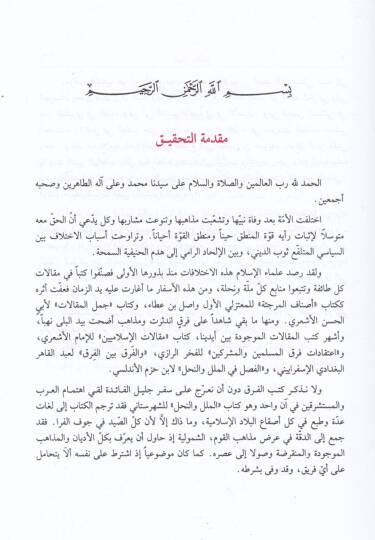 بسم الله الرحمن الرحيم
مقدمة التحقيق
الحمد لله رب العالمين والصلاة والسلام على سيدنا محمد وعلى آله الطاهرين وصحبه
أجمعين.
اختلفت الأمّة بعد وفاة نبيّها وتشعّبت مذاهبها وتنوعت مشاربها وكل يدّعي أنّ الحقّ معه
متوسلاً لإثبات رأيه قوّة المنطق حيناً ومنطق القوّة أحياناً. وتراوحت أسباب الاختلاف بين
السياسي المتلفّع ثوب الديني، وبين الإلحاد الرامي إلى هدم الحنيفية السمحة.
ولقد رصد علماء الإسلام هذه الاختلافات منذ بذورها الأولى فصنّفوا كتباً في مقالات
كل طائفة وتتبعوا منابع كلّ ملّة ونِحلة، ومن هذه الأسفار ما أغارت عليه يد الزمان فعفّت أثره
ككتاب «أصناف المرجئة» للمعتزلي الأول واصل بن عطاء، وكتاب «جمل المقالات» لأبي
الحسن الأشعري. ومنها ما بقي شاهداً على فرقٍ اندثرت ومذاهب أضحت بيد البلى نهباً،
وأشهر كتب المقالات الموجودة بين أيدينا، كتاب «مقالات الإسلاميين» للإمام الأشعري،
و«اعتقادات فرق المسلمين والمشركين» للفخر الرازي، و«الفَرق بين الفِرق» لعبد القاهر
البغدادي الإسفراييني، و«الفصل في الملل والنحل» لابن حزم الأندلسي.
ولا نذكر كتب الفرق دون أن نعرّج على سفر جليل الفائدة لقي اهتمام العرب
والمستشرقين في آن واحد وهو كتاب «الملل والنحل» للشهرستاني فقد ترجم الكتاب إلى لغات
عدّة وطبع في كل أصقاع البلاد الإسلامية، وما ذاك إلّا لأن كلّ الصّيد في جوف الفرا. فقد
جمع إلى الدقّة في عرض مذاهب القوم، الشمولية إذ حاول أن يعرّف بكلّ الأديان والمذاهب
الموجودة والمنقرضة وصولا إلى عصره. كما كان موضوعياً إذ اشترط على نفسه ألّا يتحامل
على أيّ فريق، وقد وفى بشرطه.